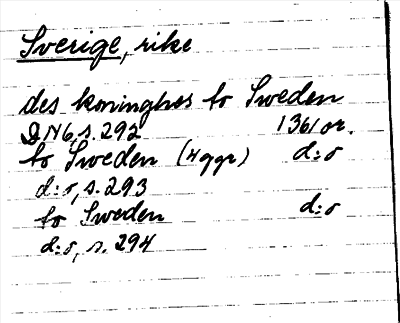 Sverige, rike
des koninghes to Sweden
DN 6, s. 292 1361 or.
to Sweden (4 ggr) d:o
d:o, s. 293
to Sweden d:o
d:o, s. 294